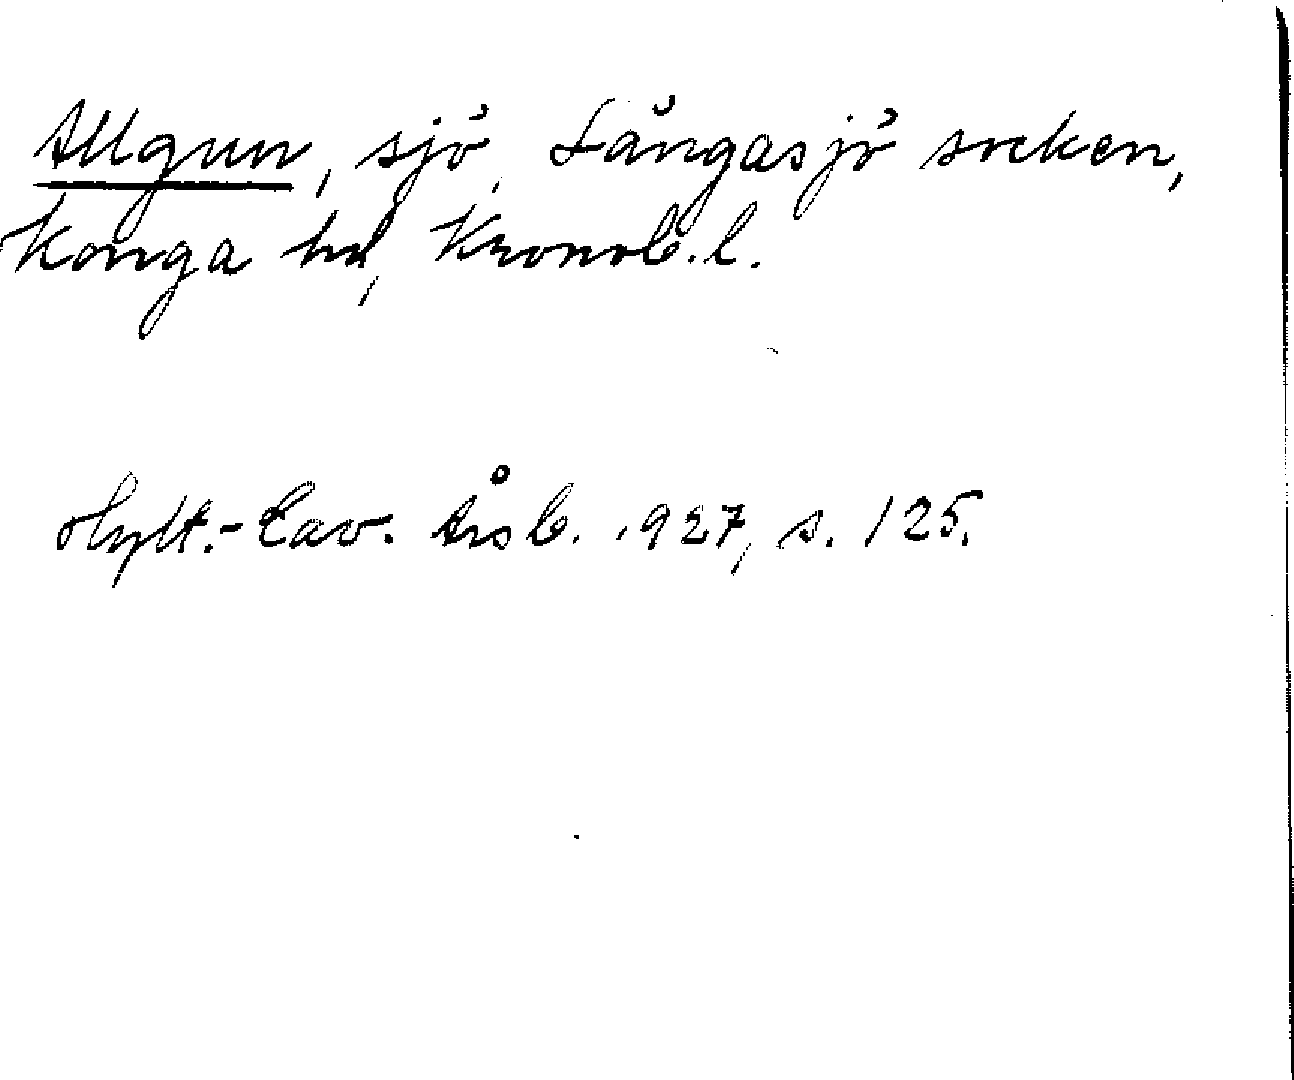 Allgun, sjö, Långasjö socken,
Konga hd, Kronob. l.
Hylt.-Cav. Årsb. 1927, s. 125.